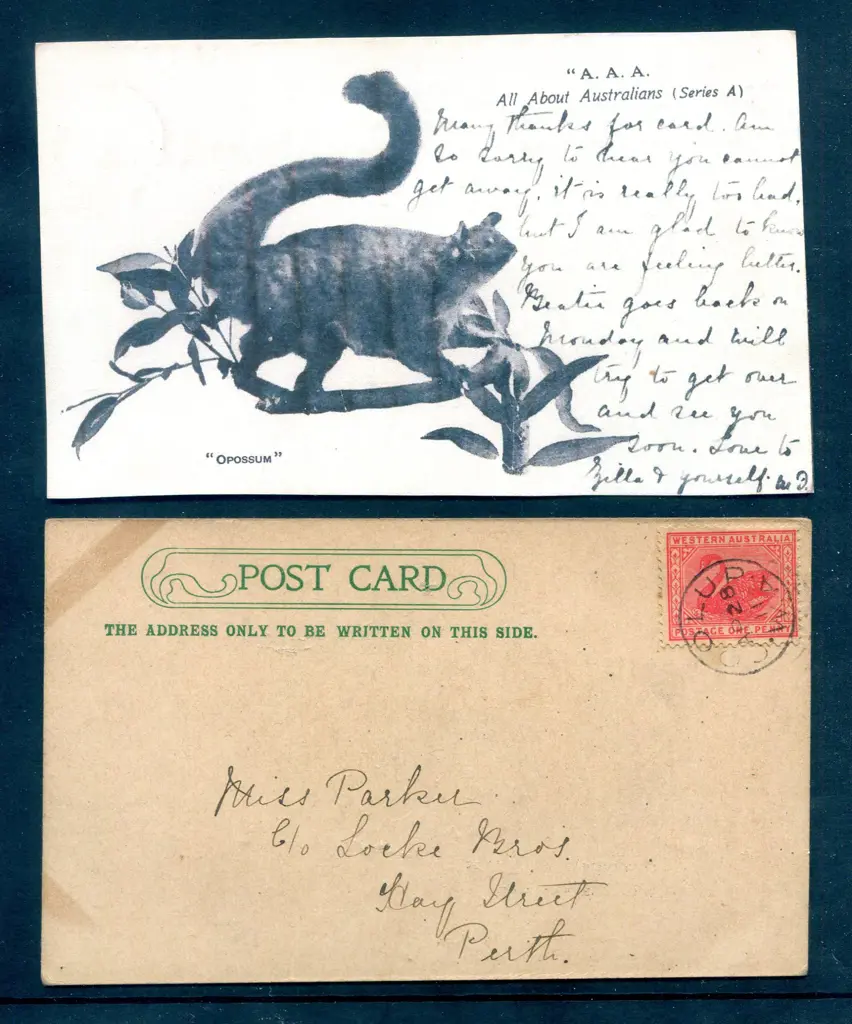 "A. A. A.
All About Australians (Series A)
Many thanks for card. Am
so sorry to hear you cannot
get away. it is really too bad,
but I am glad to know
you are feeling better.
goes back on
Monday and will
try to get over
and see you
soon. Love to
Zilla & yourself.
"OPOSSUM"
POST CARD
THE ADDRESS ONLY TO BE WRITTEN ON THIS SIDE.
WESTERN AUSTRALIA
POSTAGE ONE PENNY
Miss Parker
C/o Locke Bros.
Hay Street
Perth.